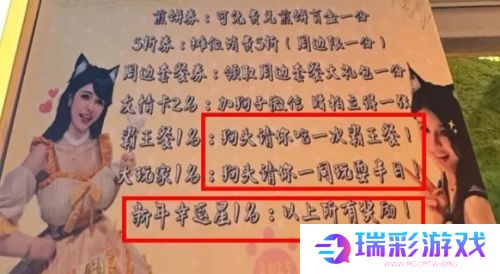 煎饼券：可免费兑煎饼盲盒一份
5折券：摊位消费5折（周边限一份）
周边套餐券：领取周边套餐大礼包一份
友情卡2名：加狗子微信 随拍立得一张
霸王餐1名：狗头请你吃一次霸王餐！
大玩家1名：狗头请你一同玩耍半日！
新年幸运星1名：以上所有奖励！
瑞彩游戏
WWW.RCCPFW.ORG